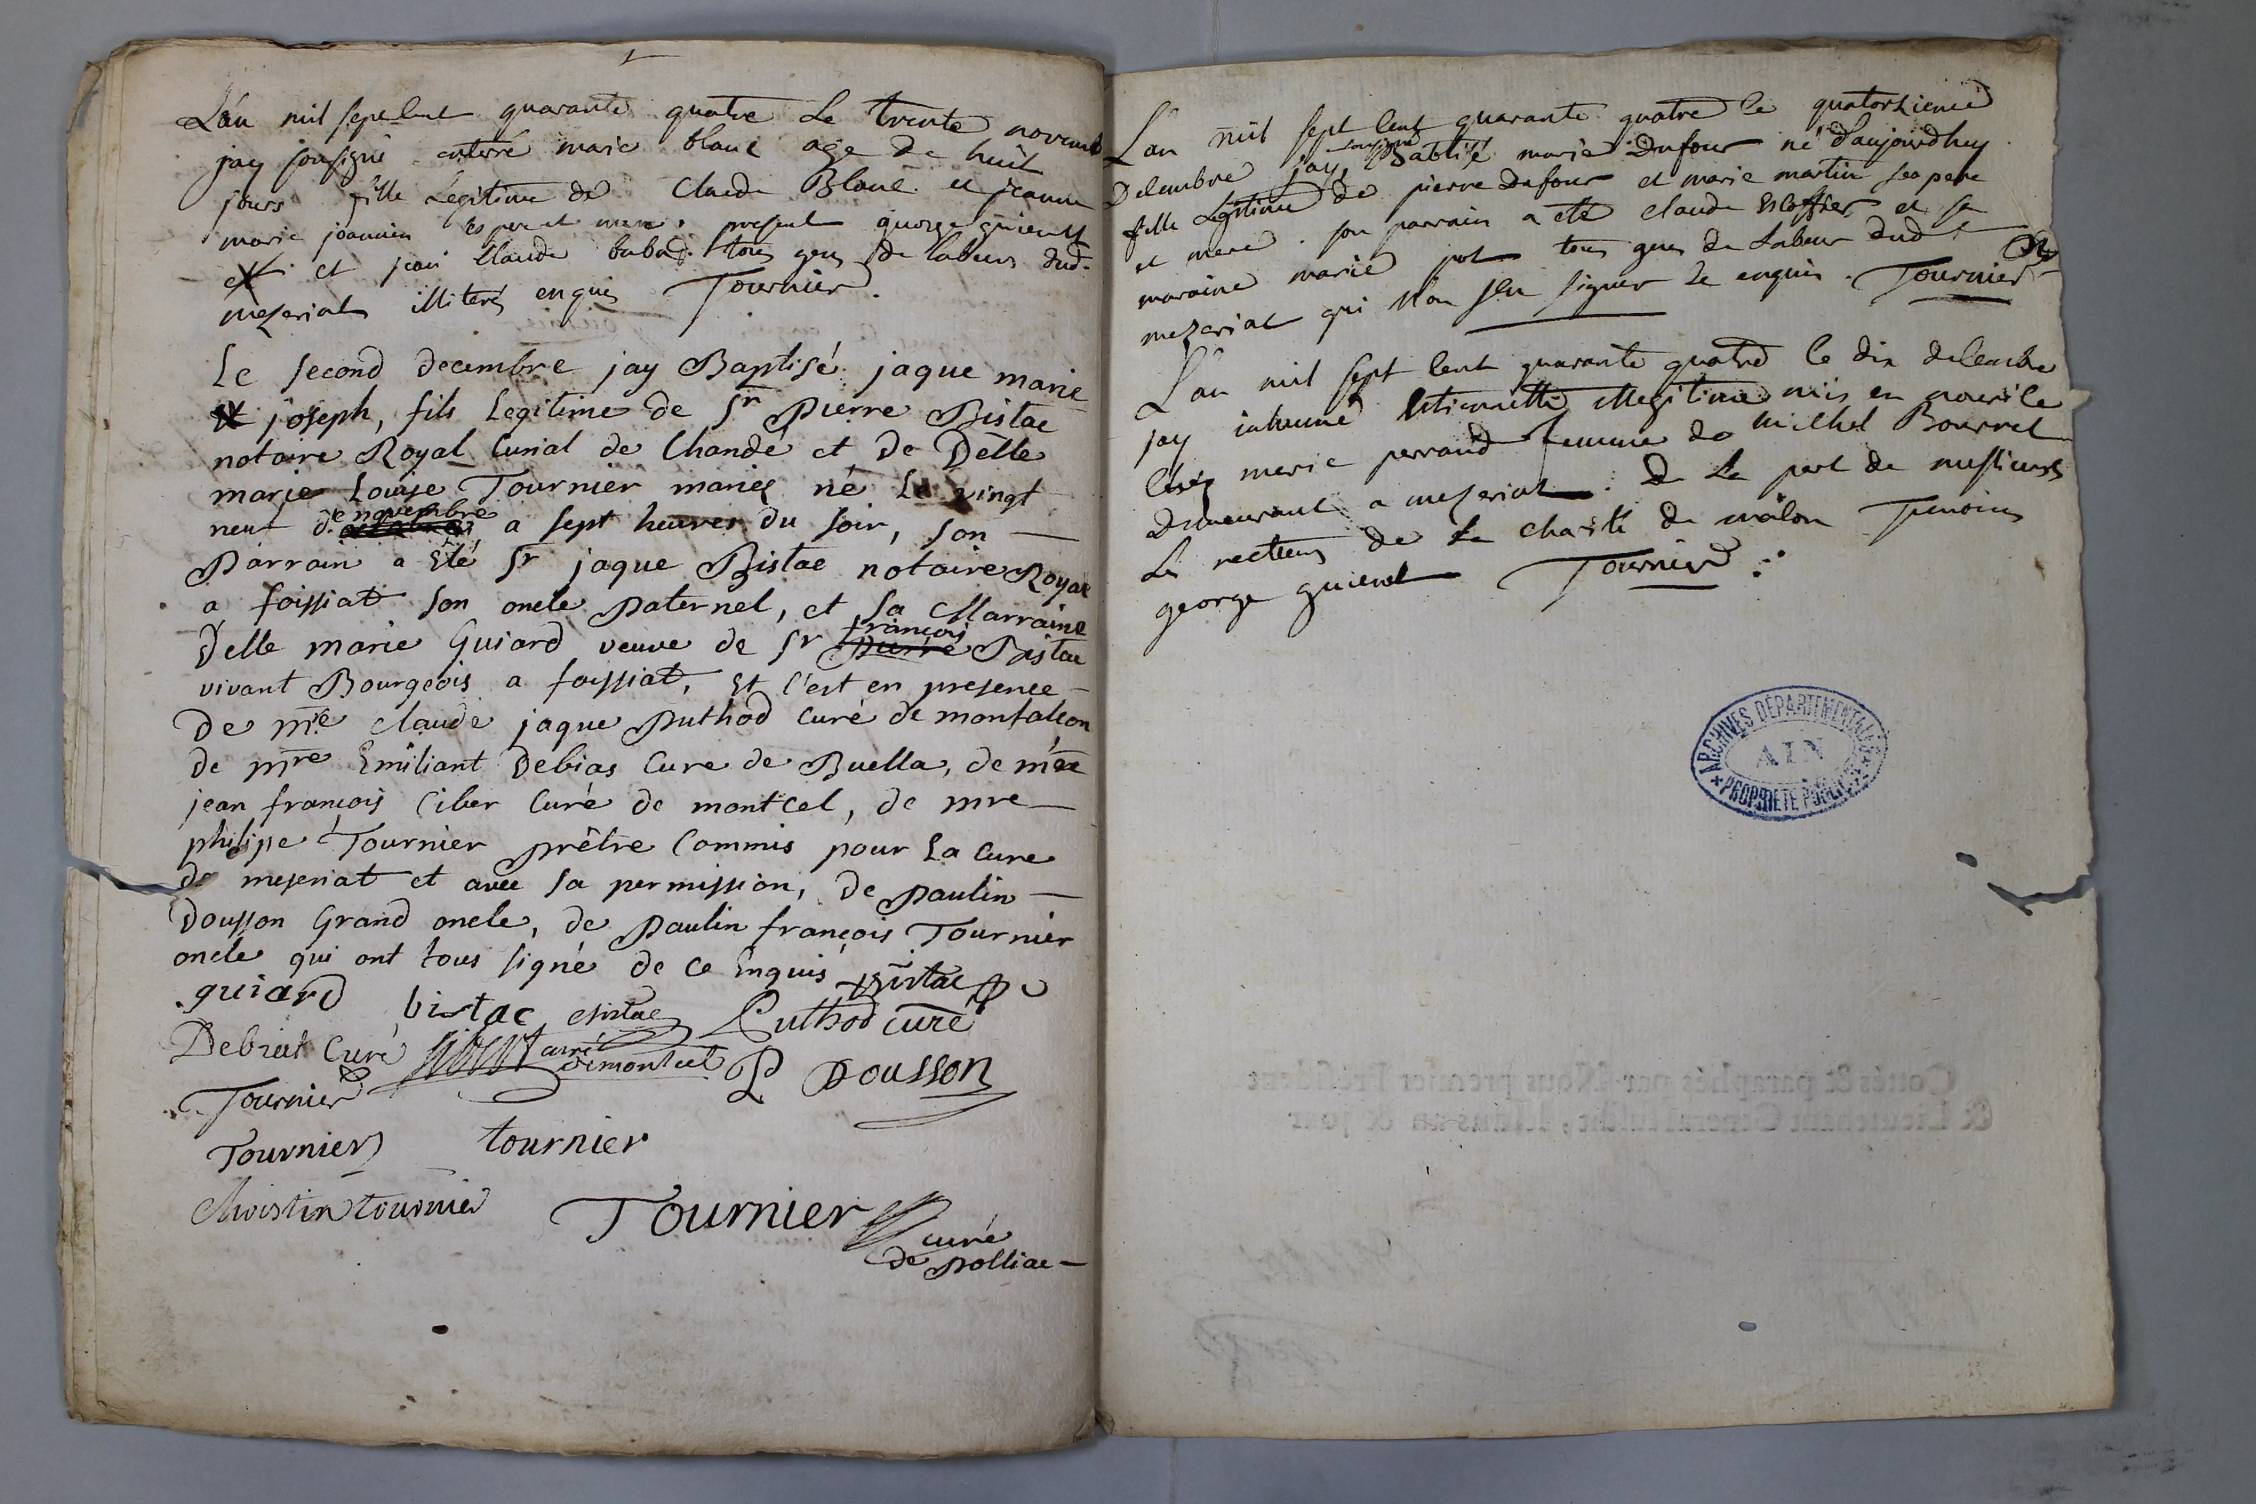 L'an mil sept cent quarante quatre le trente novemb
jay sousigné enterré marie blanc age de huit
jours fille legitime de Claude Blanc et jeanne
marie joannien ses pere et mere. present george guienet
et jean Claude babad. tous gens de labeur dud.
mezeriat illiteré enquis Tournier.
Le second decembre jay Baptisé jaque marie
joseph, fils legitime de Sr Pierre Bistac
notaire Royal Curial de Chandé et de Delle
marie Louise Tournier mariés né le vingt
neuf de novembre a sept heures du soir, son
Parrain a Eté Sr jaque Bistac notaire Royal
a foissiat son oncle paternel, et sa Marraine
Delle marie Guiard veuve de Sr françois Bistac
vivant Bourgeois a foissiat, Et c'est en presence
de mre claude jaque Puthod Curé de montfalcon
de mre Emiliant Debias Cure de Buella, de mre
jean françois Ciber Curé de montcel, de mre
philipe Tournier prêtre Commis pour la Cure
de mezeriat et avec sa permission, de paulin
Dousson Grand oncle, de Paulin françois Tournier
oncle qui ont tous signé de ce Enquis Bistac
guiard bistac Bistac Puthod curé
Debiat Curé curé de montcel P Dousson
Tournier
Tournier tournier
Christin tournier Tournier
curé
de polliac
L'an mil sept cent quarante quatre le quatorzieme
Decembre jay sousigné Babtisé marie Dufour né d'aujourdhuy
fille legitime de pierre Dufour et marie martin sea pere
et mere. son parrain a eté claude Escoffier et sa
maraine marie pot tous gens de labeur dud
mezeriat qui n'on seu signer de enquis. Tournier
L'an mil sept cent quarante quatre le dix decembre
jay inhumé Etiennette illegitime mis en nourice
chez marie perraud femme de michel Bourret
Demeurant a mezeriat. de la part de messieurs
les recteurs de la charité de mâcon Temoins
george guienet Tournier
ARCHIVES DÉPARTEMENTALES
AIN
PROPRIÉTÉ PUBLIQUE
Cottés & paraphés par Nous premier Président
& Lieutenant General susdit, lesdits an & jour